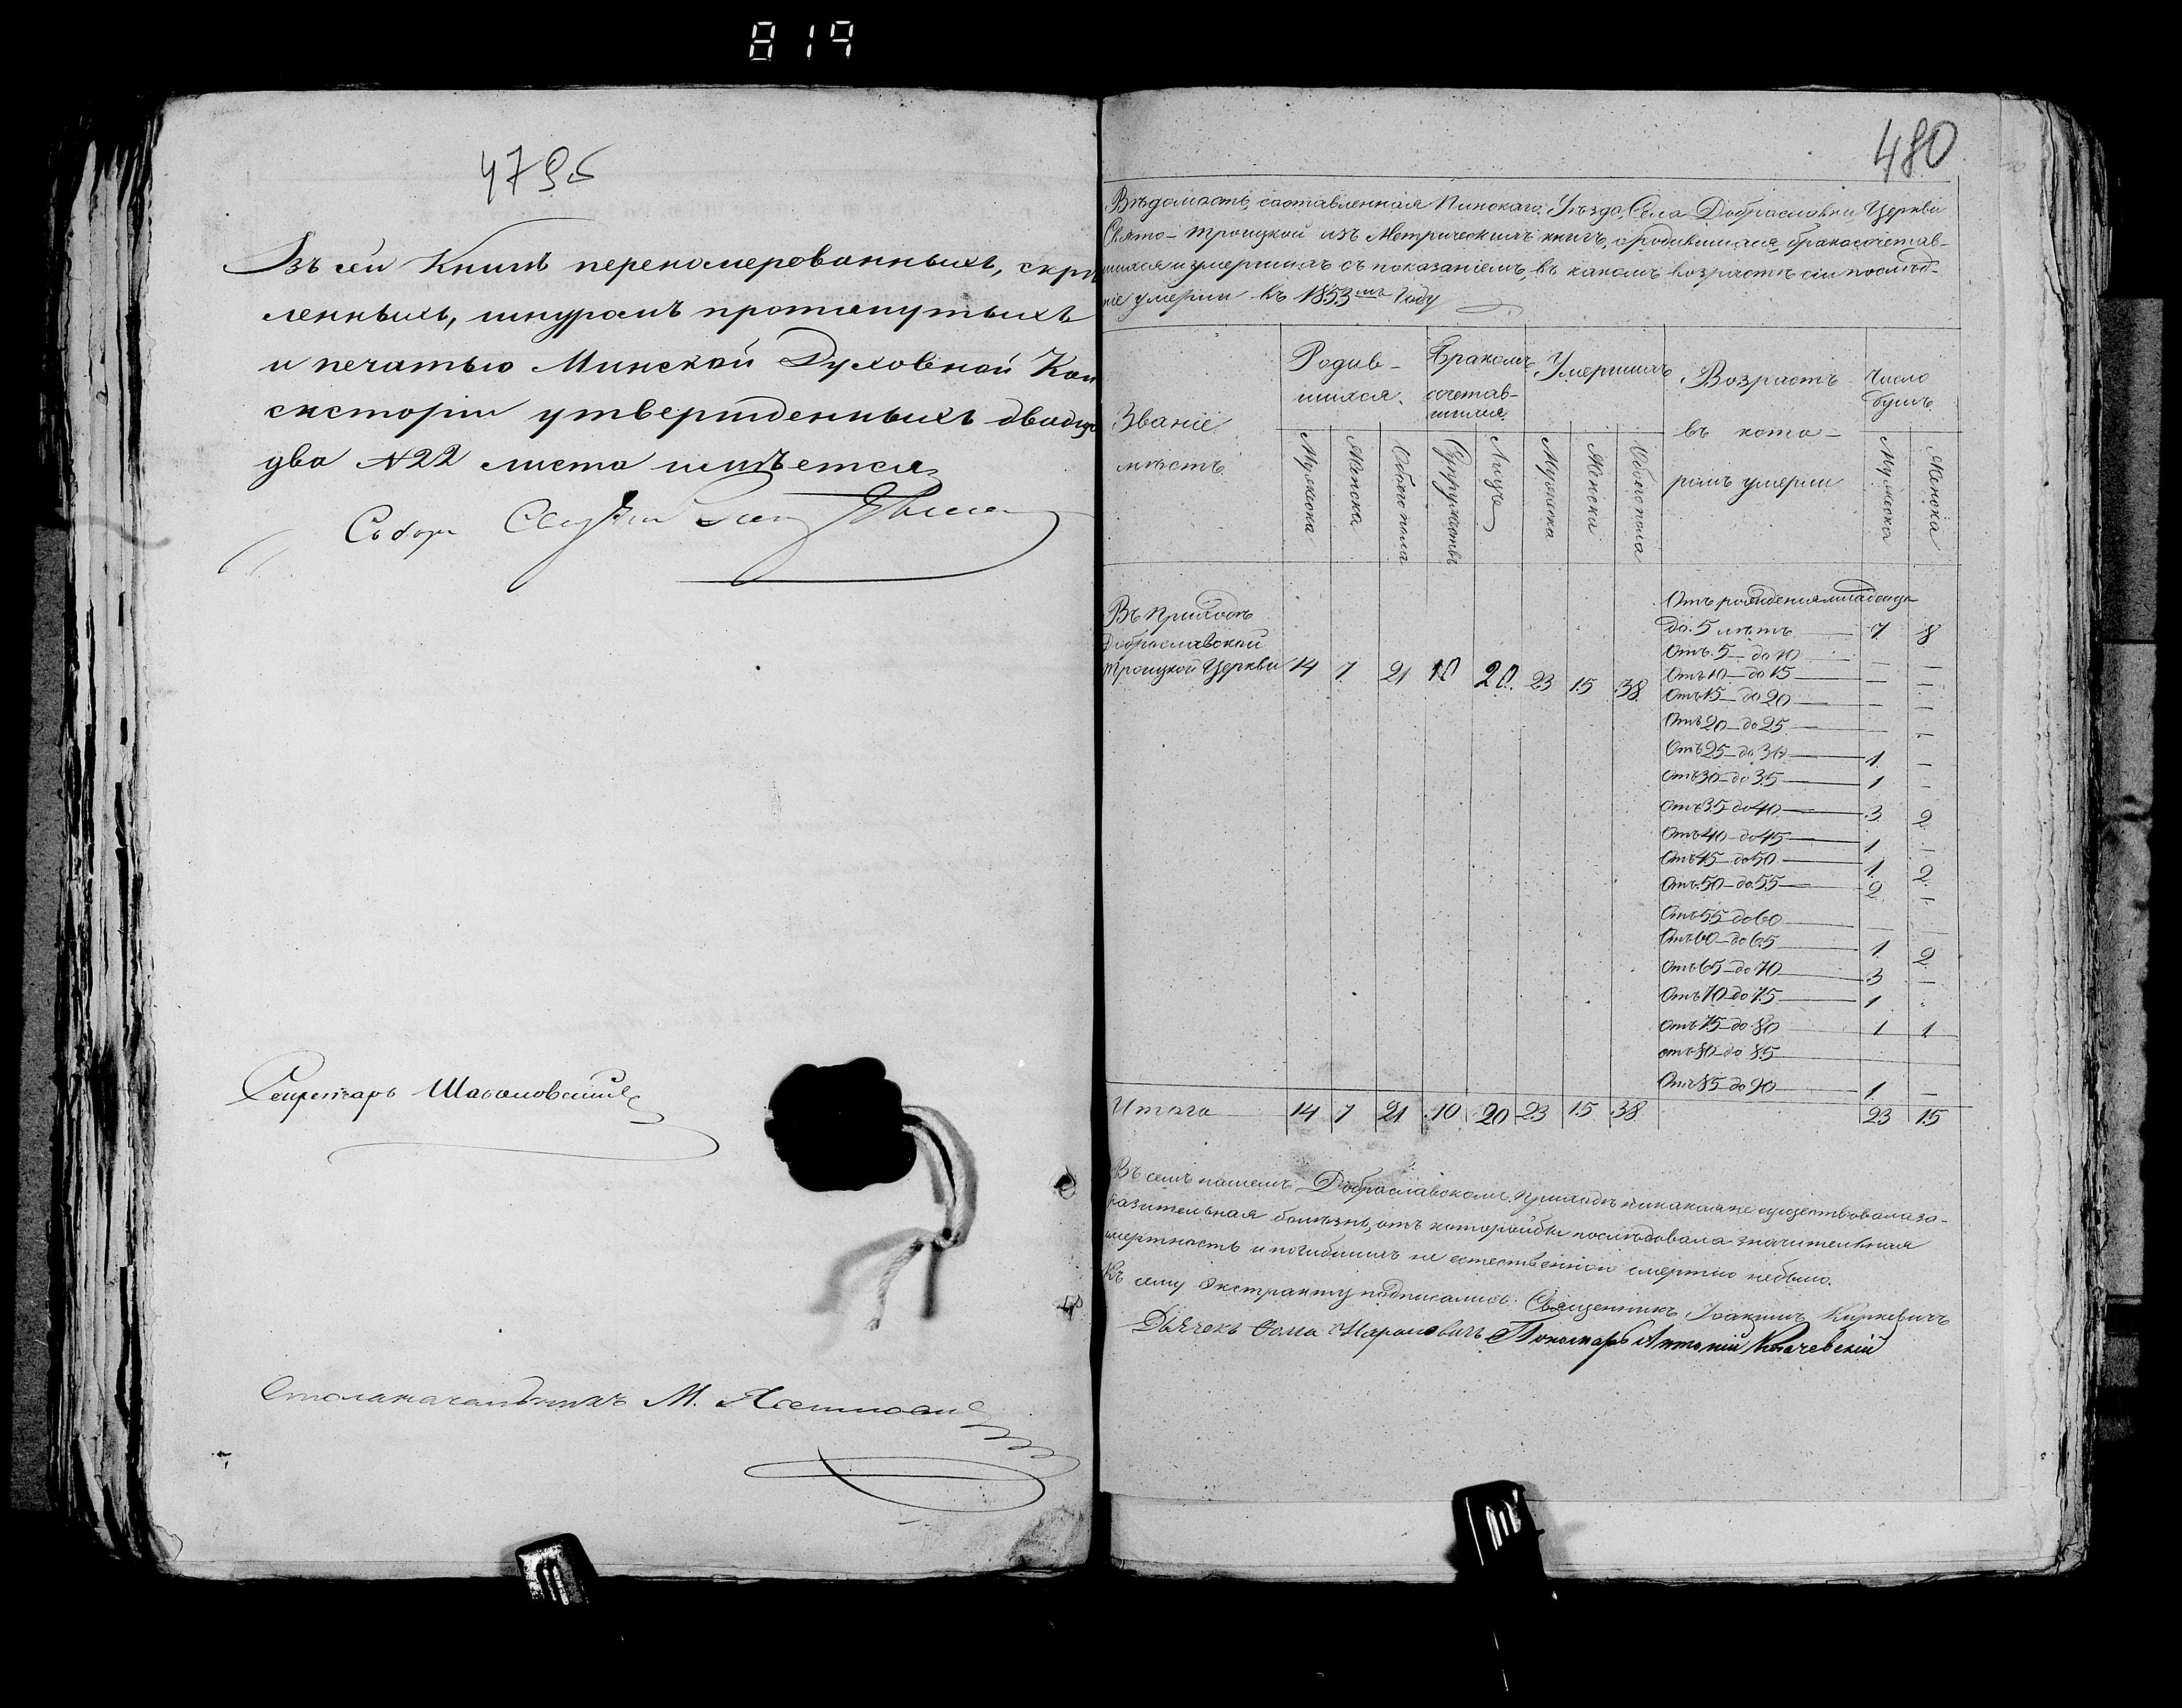 819
479 об
Въ сей Книгѣ перенумерованныхъ, скрѣ
пленныхъ, шнуромъ протянутыхъ
и печатью Минской Духовной Кон
систоріи утвержденныхъ двадца
два №22 листа имѣется
Секретарь
Столоначальникъ М.
480
Вѣдомость, составленная Пинскаго Уѣзда, Села Доброславки Церкви
Свято-Троицкой изъ Метрическихъ книгъ, о родившихся, бракосочетав-
шихся и умершихъ съ показаніемъ, въ какомъ возрастѣ сіи послѣд-
ніе умерли въ 1853мъ Году
Званіе мѣстъ.
Родив-шихся.
Бракомъ сочетав-шихся
Умершихъ
Возрастъ въ кото-ромъ умерли
Число душъ
Мужеска Женска Обоего пола Супружествъ Лицъ Мужеска Женска Обоего пола Мужеска Женска
Въ Приходѣ
Доброславской
Троицкой Церкви 14 7 21 10 20 23 15 38
Отъ рожденія младенца
до 5 лѣтъ — 7 8
Отъ 5 — до 10 — —
Отъ 10 — до 15 — — —
Отъ 15 — до 20 — — —
Отъ 20 — до 25 — — —
Отъ 25 — до 30 — 1 —
Отъ 30 — до 35 — 1 —
Отъ 35 до 40 — 3 2
Отъ 40 — до 45 — 1 —
Отъ 45 — до 50 — 1 2
Отъ 50 — до 55 — 2 —
Отъ 55 до 60 — — —
Отъ 60 — до 65 — 1 2
Отъ 65 — до 70 — 3 —
Отъ 70 — до 75 — 1 "
Отъ 75 — до 80 — 1 1
отъ 80 — до 85
Отъ 85 до 90 — 1 —
Итого 14 7 21 10 20 23 15 38 23 15
Въ семъ нашемъ Доброславскомъ Приходѣ никакая не существовала за-
разительная болѣзнь, отъ которой бы послѣдовала значительная
смертность и погибшихъ не естественной смертію небыло.
Къ сему Экстракту подписались: Священникъ Іоакимъ Киркевичъ
Дьячекъ Ѳома Пономарь Антоній